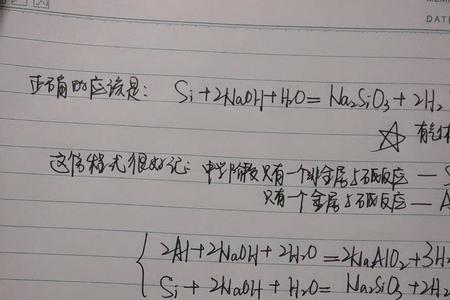 DATE
正确的应该是: Si+2NaOH+H₂O=Na₂SiO₃+2H₂
☆ 有气体
这个格式很好记: 中学阶段只有一个非金属与碱反应 — S
只有一个金属与碱反应 — A
2Al+2NaOH+2H₂O=2NaAlO₂+3H
Si+2NaOH+H₂O=Na₂SiO₃+2H₂